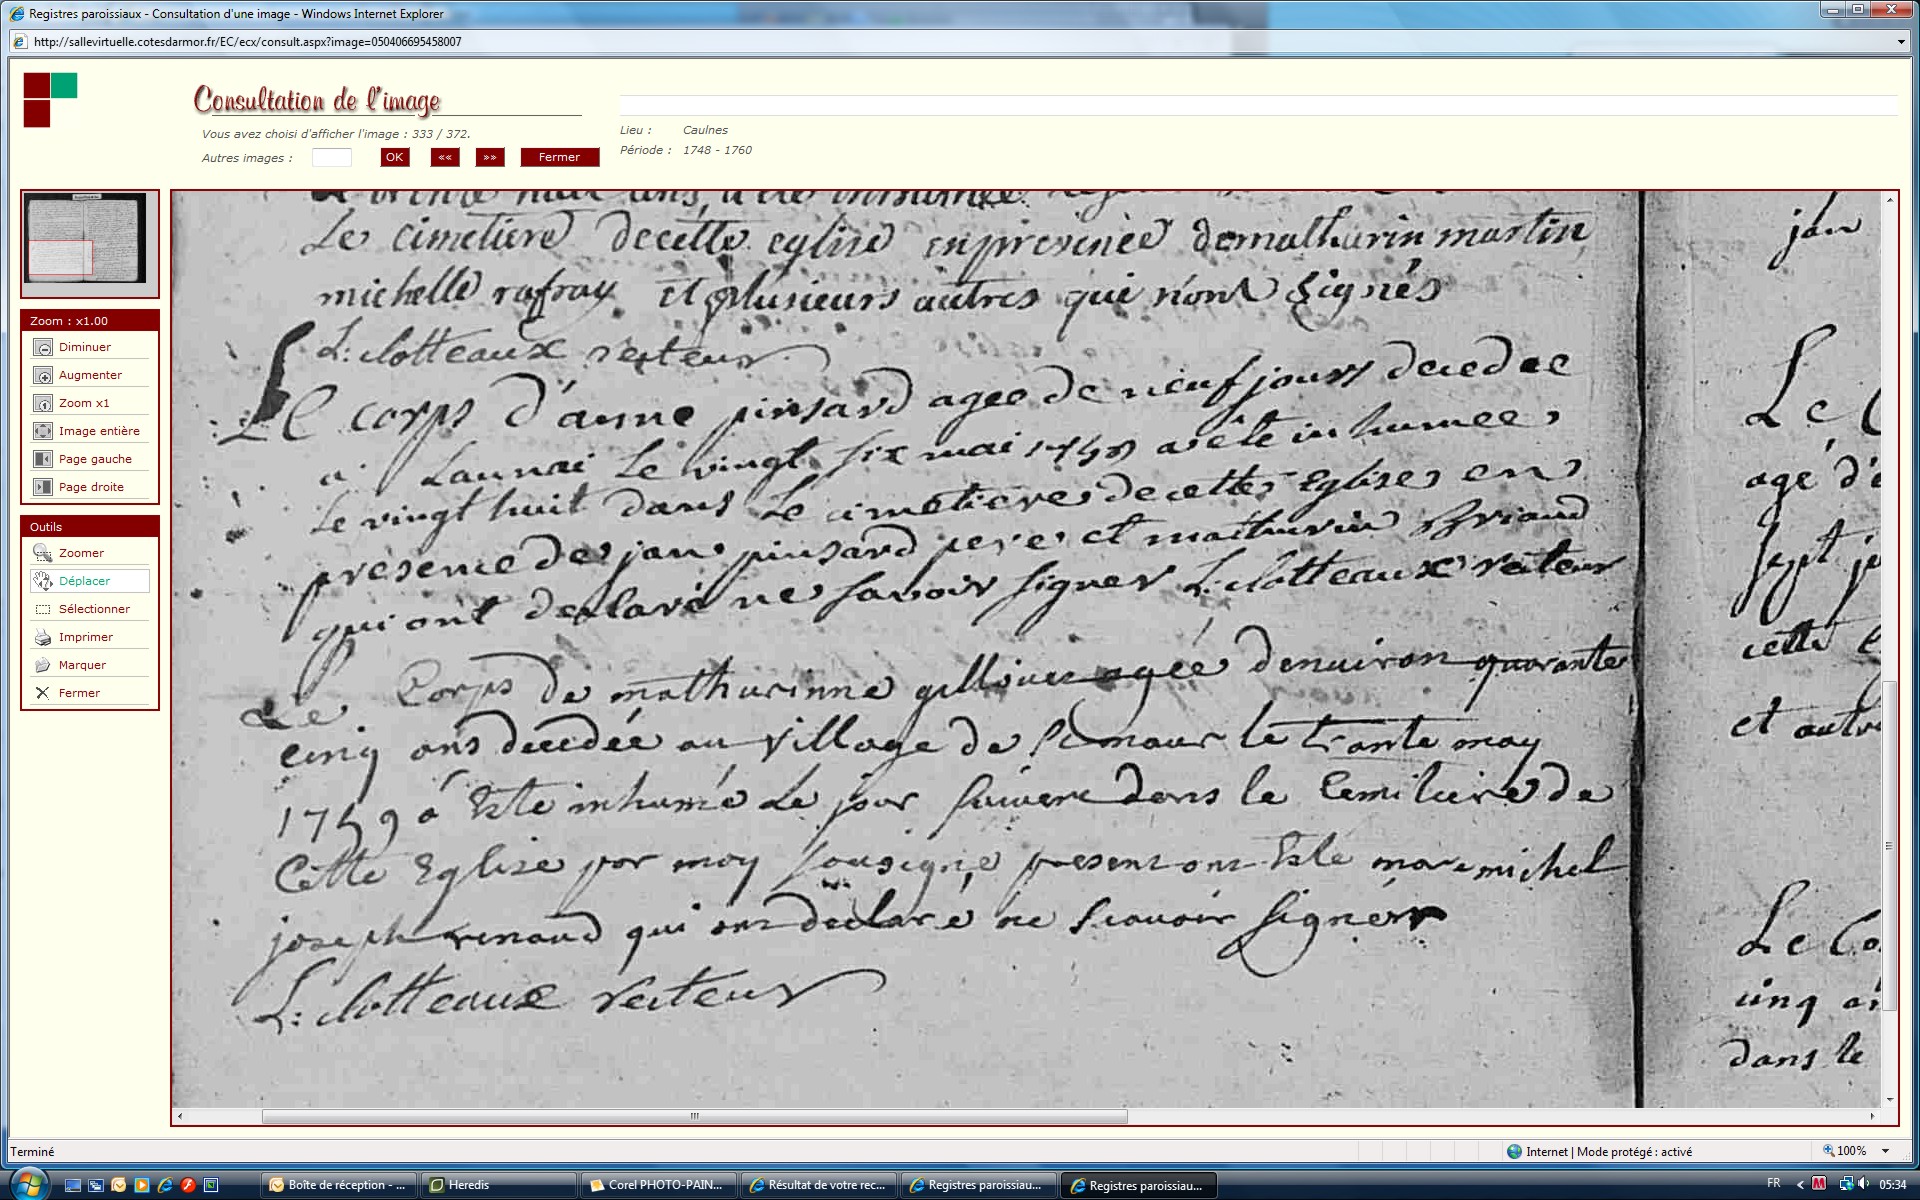 Registres paroissiaux - Consultation d'une image - Windows Internet Explorer
http://sallevirtuelle.cotesdarmor.fr/EC/ecx/consult.aspx?image=050406695458007
Consultation de l'image
Vous avez choisi d'afficher l'image : 333 / 372.
Autres images :
OK
««
»»
Fermer
Lieu : Caulnes
Période : 1748 - 1760
Zoom : x1.00
Diminuer
Augmenter
Zoom x1
Image entière
Page gauche
Page droite
Outils
Zoomer
Déplacer
Sélectionner
Imprimer
Marquer
Fermer
Le cimetiere de cette eglise en presence de mathurin martin
michelle rafray et plusieurs autres qui n'ont signés
L: clotteaux recteur
Le corps d'anne pinsard agee de neuf jours decedee
a Launai le vingt six mai a été inhumee
Le vingt huit dans Le cimetiere de cette Eglise en
presence de jan pinsard pere et mathurin Briand
qui ont declaré ne savoir signer L. clotteaux recteur
Le Corps de mathurinne agée denviron quarante
cinq ans decedée au village de le trante may
1749 a Esté inhumée Le jour suivent dans le Cemitiere de
Cette Eglise par moy sousigné present ont Esté marc michel
joseph renaud qui ont declaré ne scavoir signer
L: clotteaux recteur
jan
Le C
agé d'e
sept jo
cette E
et autre
Le Co
cinq an
dans le
Terminé
Internet | Mode protégé : activé
100%
Boîte de réception - ...
Heredis
Corel PHOTO-PAIN...
Résultat de votre rec...
Registres paroissiau...
Registres paroissiau...
FR
05:34